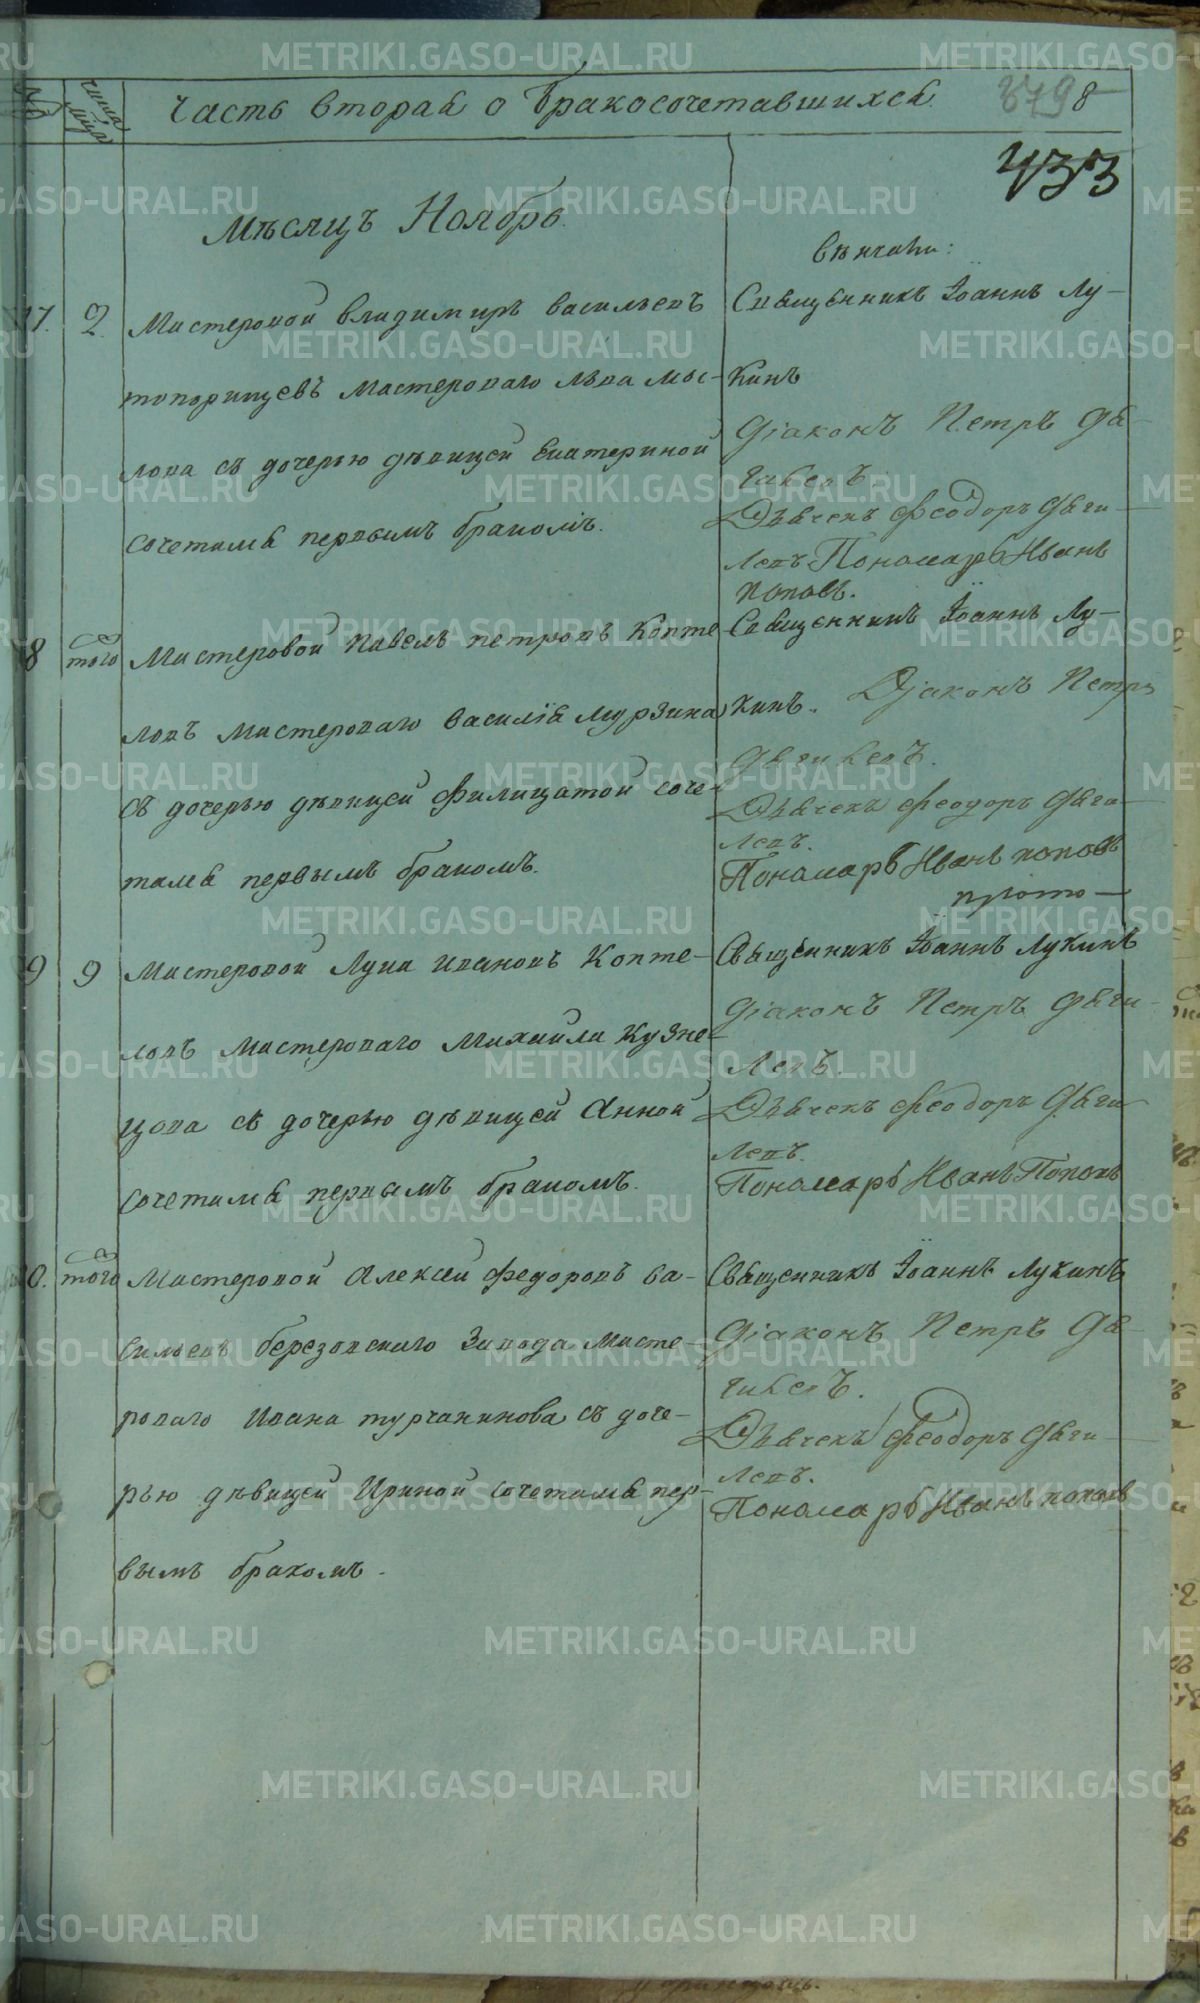 Часть вторая о бракосочетавшихся
8
433
Мѣсяцъ Ноябрь.
вѣнчали:
17. 2. Мастеровой Владимиръ Васильевъ
Топорищевъ мастероваго Льва Мы-
лова съ дочерью дѣвицей Екатериной
сочетался первымъ бракомъ.
Священникъ Iоаннъ Лу-
кинъ
Дiаконъ Петръ Дя-
гилевъ.
Дьячекъ Феодоръ Дяги-
левъ Пономарь Иванъ
Поповъ.
8 того Мастеровой Павелъ Петровъ Копте
ловъ мастероваго Василiя Мурзина
съ дочерью дѣвицей Филицатой соче-
тался первымъ бракомъ.
Священникъ Iоаннъ Лу-
кинъ. Дiаконъ Петръ
Дягилевъ.
Дьячекъ Феодоръ Дяги-
левъ.
Пономарь Иванъ Поповъ
9 9 Мастеровой Лука Ивановъ Копте-
ловъ мастероваго Михайла Кузне-
цова съ дочерью дѣвицей Анной
сочетался первымъ бракомъ.
Священникъ Iоаннъ Лукинъ
Дiаконъ Петръ Дяги-
левъ.
Дьячекъ Феодоръ Дяги
левъ.
Пономарь Иванъ Поповъ
0. того Мастеровой Алексей Федоровъ Ва-
сильевъ березовскаго завода масте-
роваго Ивана Турчанинова съ доче-
рью дѣвицей Ириной сочетался пер-
вымъ бракомъ.
Священникъ Iоаннъ Лукинъ
Дiаконъ Петръ Дя-
гилевъ.
Дьячекъ Феодоръ Дяги-
левъ.
Пономарь Иванъ Поповъ
METRIKI.GASO-URAL.RU